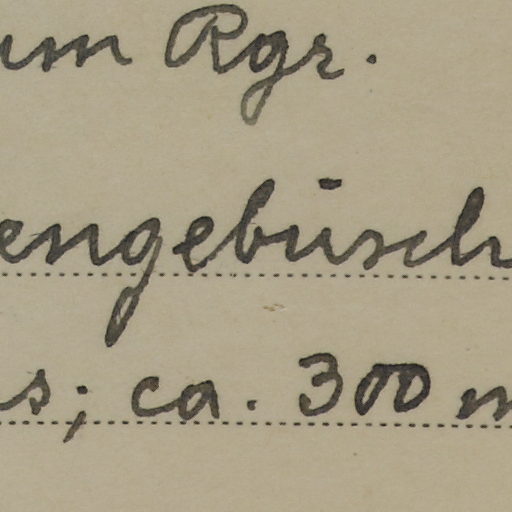 um Rgr.
engebüsch
s; ca. 300 m